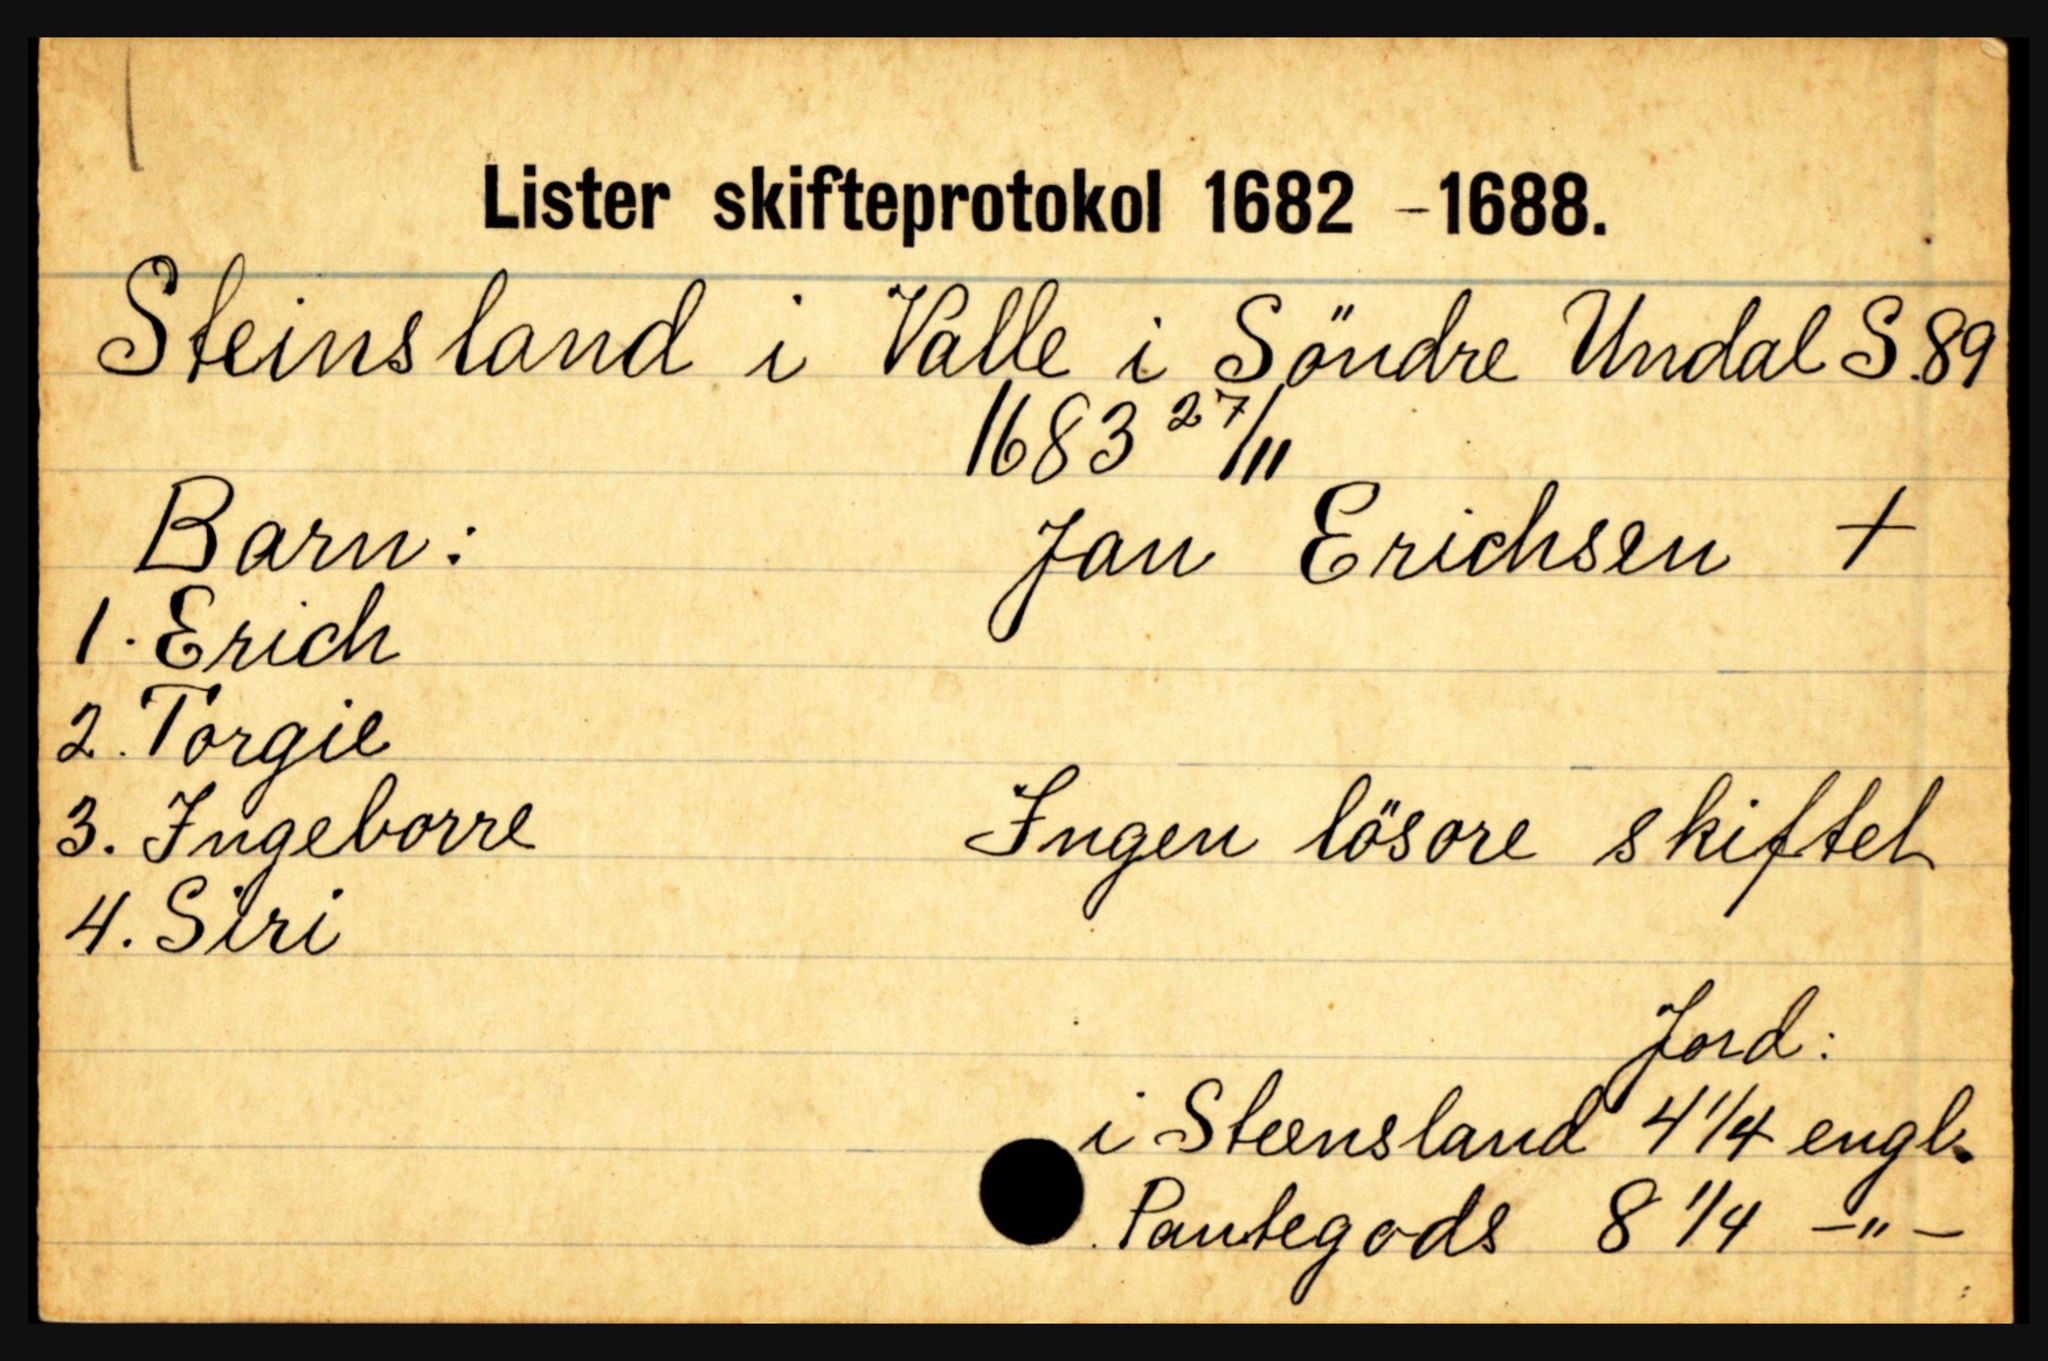 Lister skifteprotokol 1682 - 1688.
Steinsland i Valle i Söndre Undal S.89
1683 27/11
Barn: Jan Erichsen +
1. Erich
2. Torgie
3. Ingeborre Ingen lösore skiftet
4. Siri
Jord:
i Steensland 4 1/4 engl.
Pantegods 8 1/4 -"-